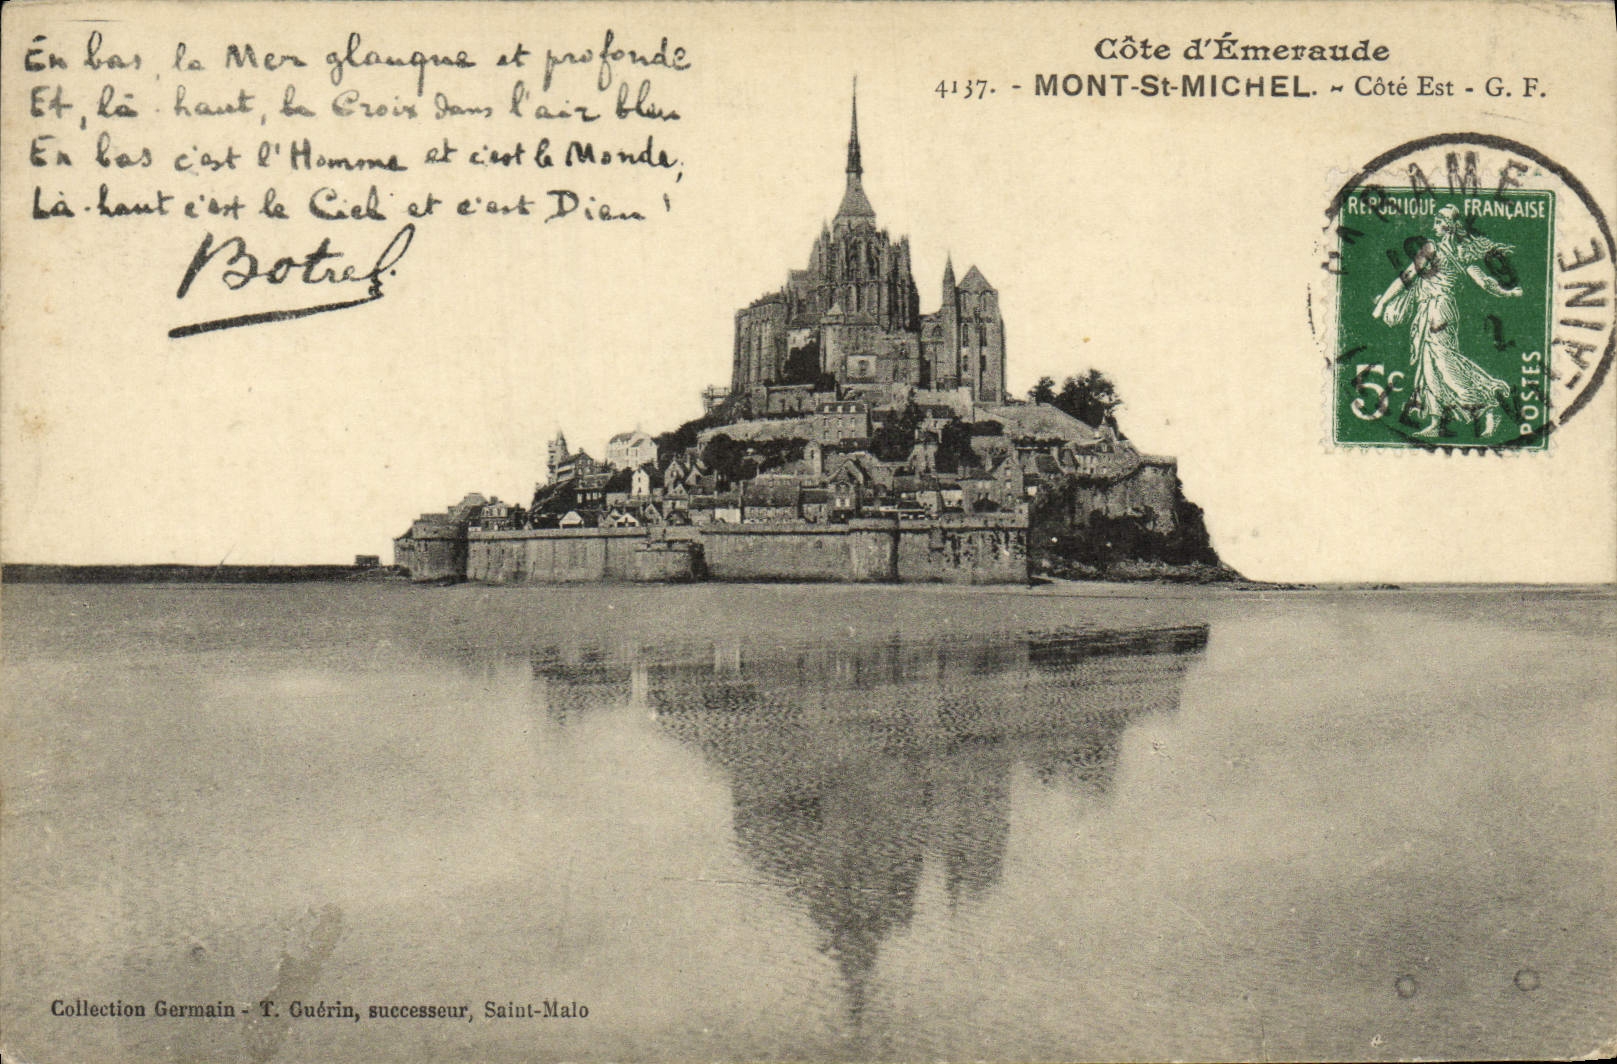 En bas, la Mer glauque et profonde
Et, là-haut, la Croix dans l'air bleu
En bas c'est l'Homme et c'est le Monde,
Là-haut c'est le Ciel et c'est Dieu !
Botrel.
Côte d'Émeraude
4137. - MONT-St-MICHEL. - Côté Est - G. F.
RÉPUBLIQUE FRANÇAISE
5c
POSTES
PARAMÉ
ILLE ET VILAINE
Collection Germain - T. Guérin, successeur, Saint-Malo